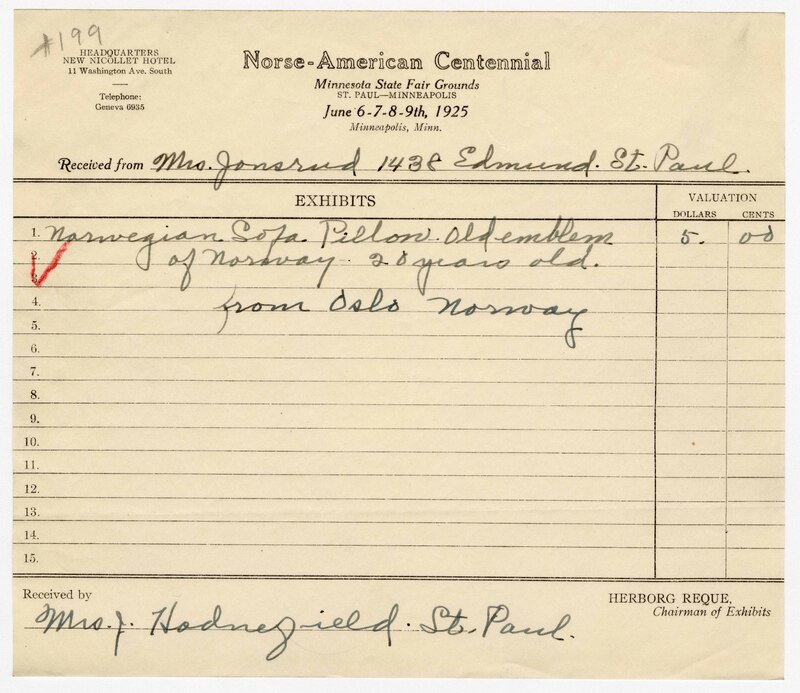 #199
HEADQUARTERS
NEW NICOLLET HOTEL
11 Washington Ave. South
Telephone:
Geneva 6935
Norse-American Centennial
Minnesota State Fair Grounds
ST. PAUL—MINNEAPOLIS
June 6-7-8-9th, 1925
Minneapolis, Minn.
Received from Mrs. Jonsrud 1438 Edmund. St. Paul.
EXHIBITS
VALUATION
DOLLARS CENTS
1. Norwegian Sofa Pillow. Old emblem 5. 00
2. of Norway. 20 years old.
3.
4. from Oslo Norway
5.
6.
7.
8.
9.
10.
11.
12.
13.
14.
15.
Received by
HERBORG REQUE,
Chairman of Exhibits
Mrs. J. Hodnefield. St. Paul.